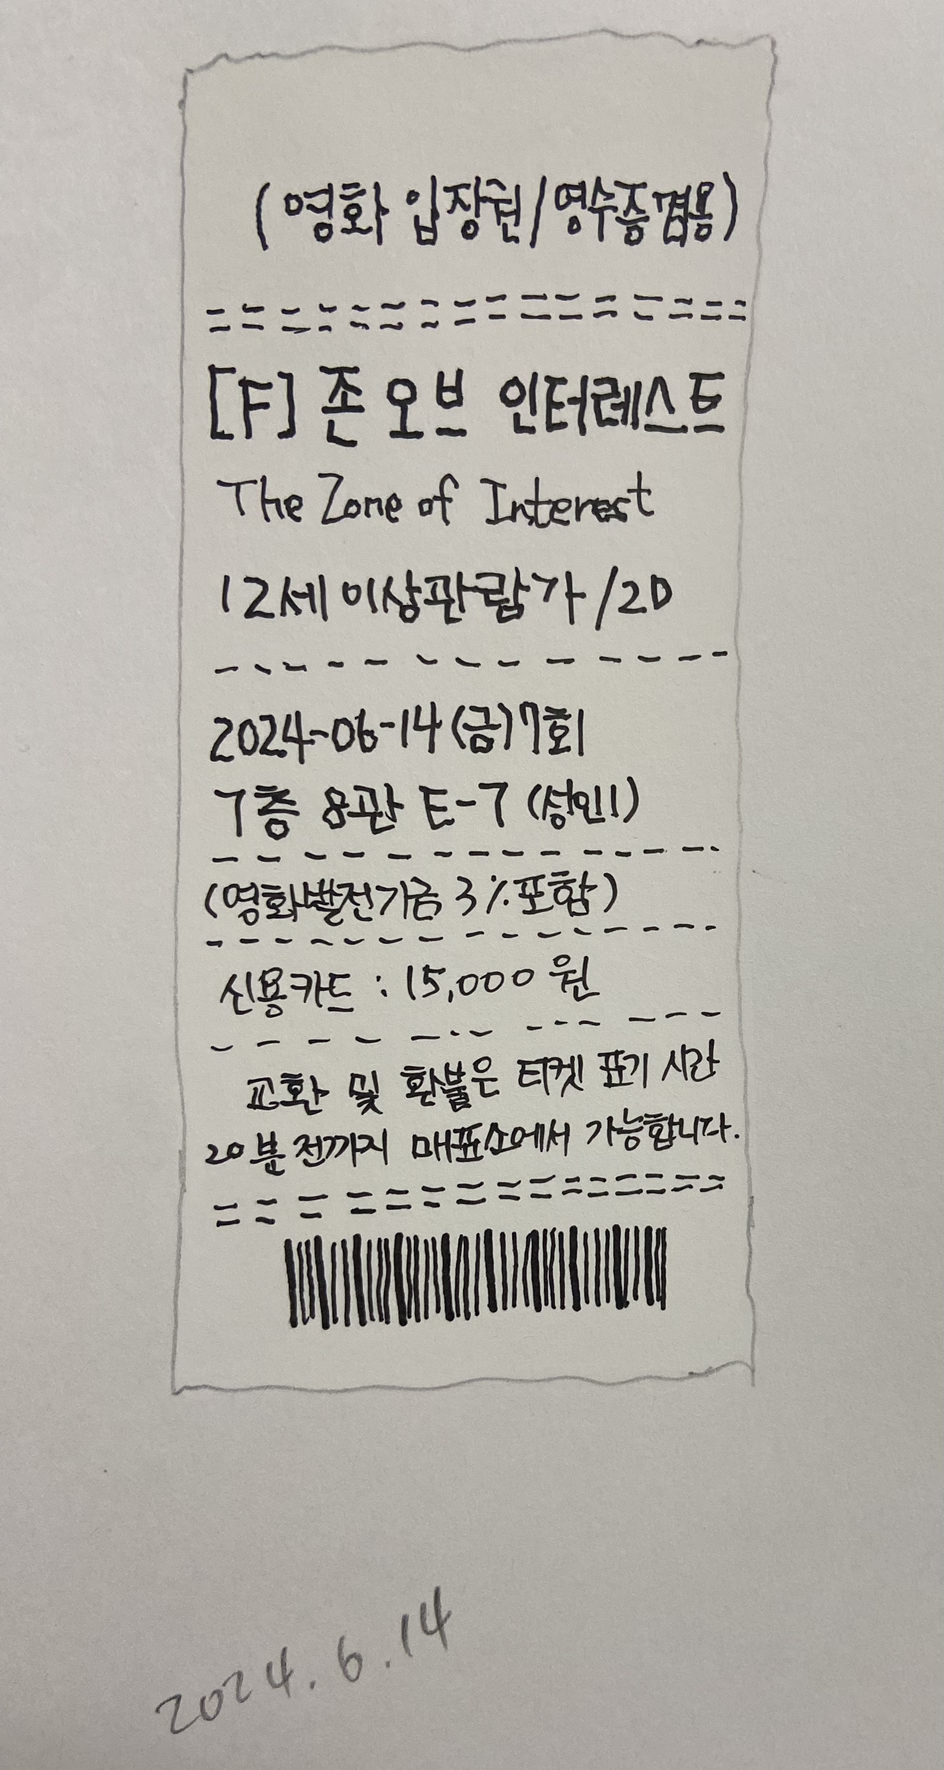 (영화 입장권/영수증겸용)
[F] 존 오브 인터레스트
The Zone of Interest
12세이상관람가/2D
2024-06-14(금)7회
7층 8관 E-7 (성인1)
(영화발전기금 3%포함)
신용카드 : 15,000원
교환 및 환불은 티켓 표기 시간
20분 전까지 매표소에서 가능합니다.
2024. 6. 14